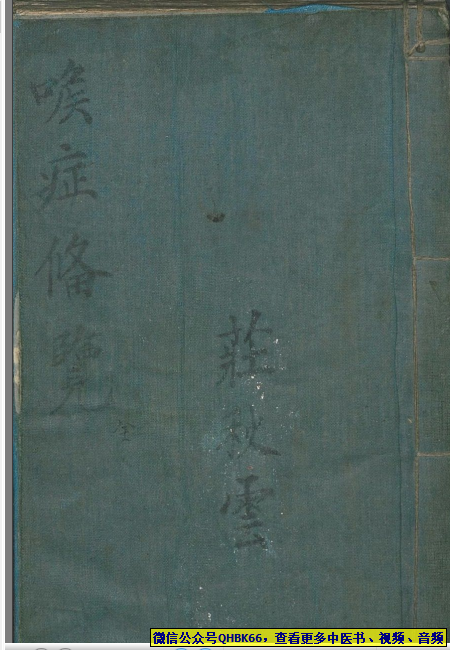 喉症偹覽
全
莊秋雲
微信公众号QHBK66，查看更多中医书、视频、音频